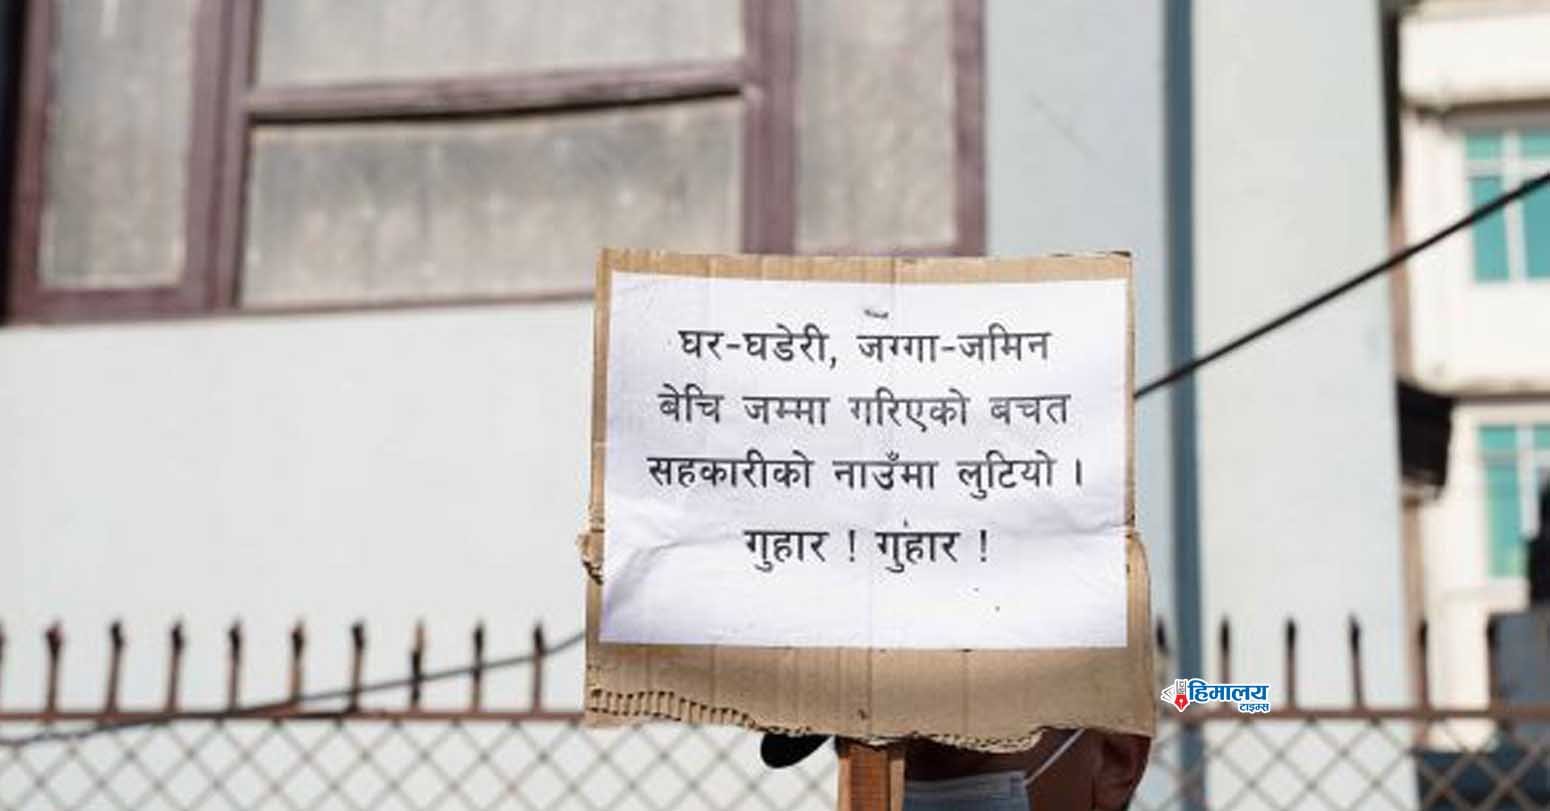 घर-घडेरी, जग्गा-जमिन
बेचि जम्मा गरिएको बचत
सहकारीको नाउँमा लुटियो ।
गुहार ! गुहार !
हिमालय
टाइम्स